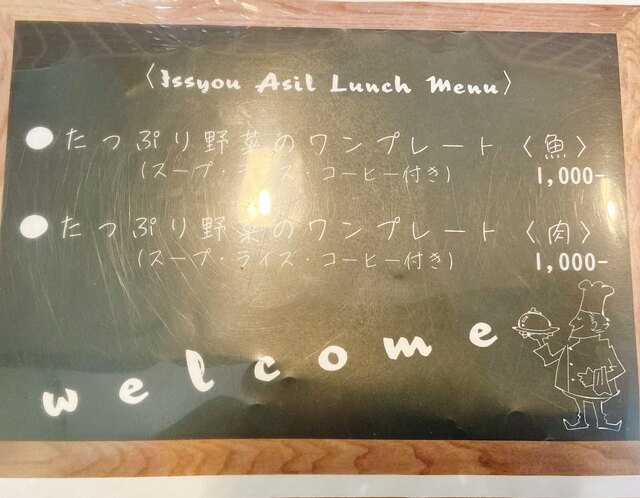 〈Issyou Asil Lunch Menu〉
●たっぷり野菜のワンプレート〈魚〉
(スープ・ライス・コーヒー付き) 1,000-
●たっぷり野菜のワンプレート〈肉〉
(スープ・ライス・コーヒー付き) 1,000-
welcome